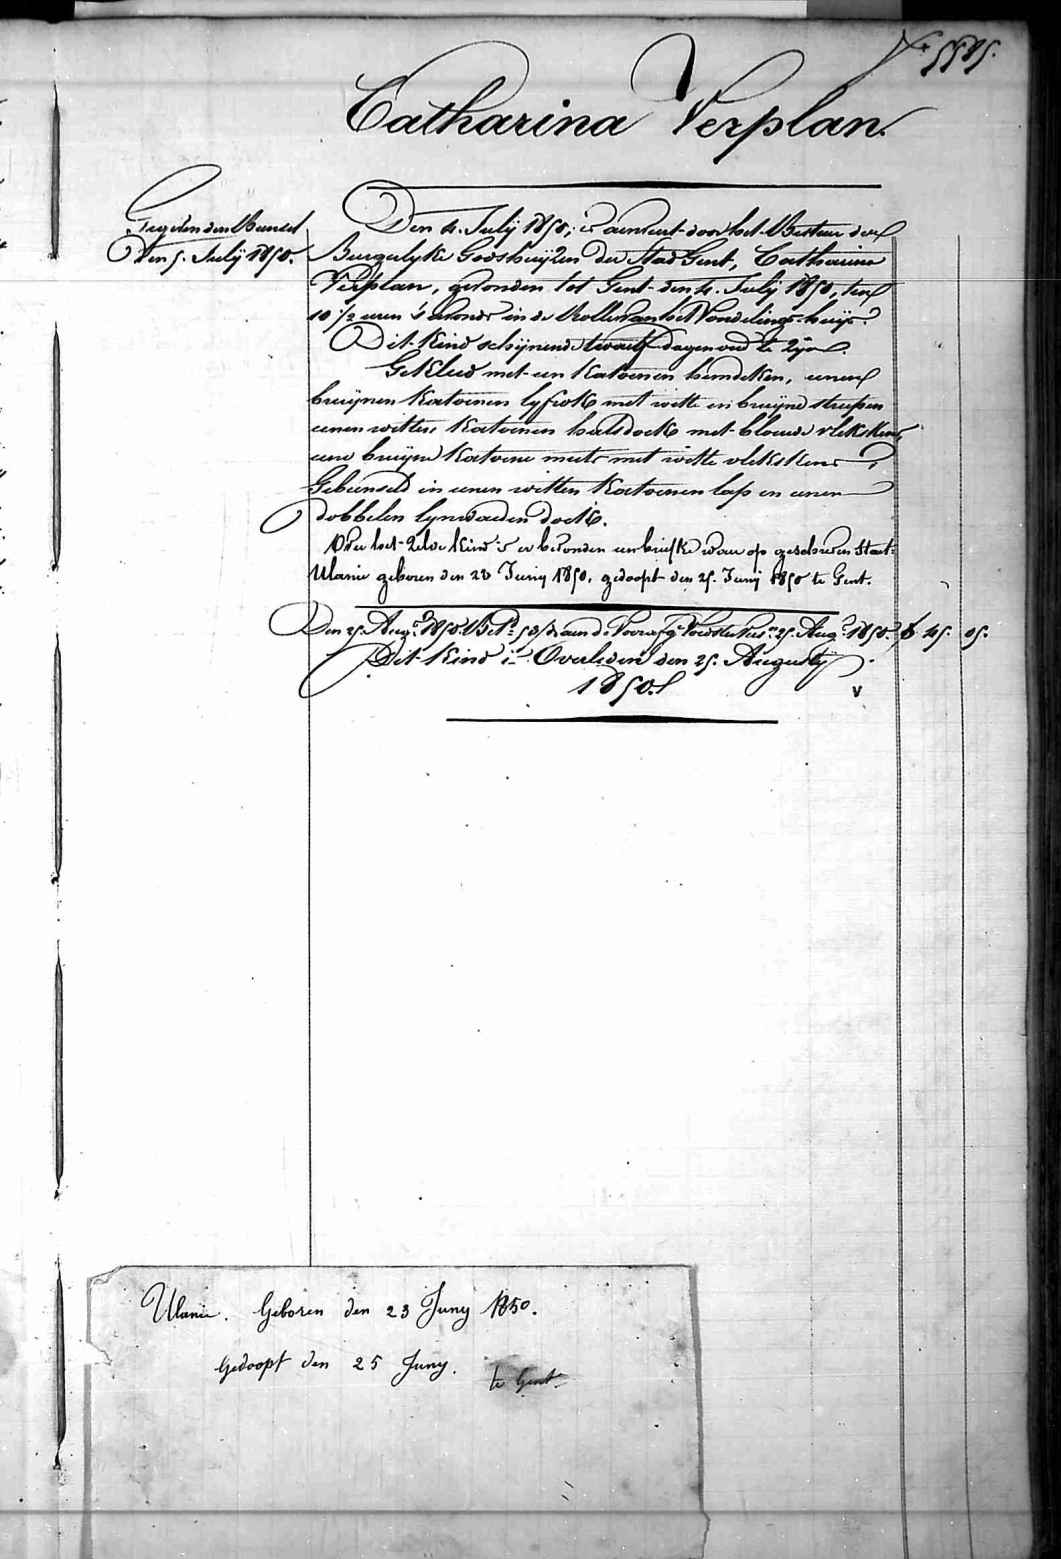 Nº 5585.
Catharina Verplan.
Gegeven den
Den 5. Julÿ 1850.
Den 4. Julÿ 1850, is aenveert door het Bestuer der
Burgerlyke Godshuijzen der Stad Gent, Catharina
Verplan, gevonden tot Gent den 4. Julÿ 1850, ten
10 1/2 uren 's avonds in de Rolle van het Vondelings-huijs.
Dit Kind schijnende twaelf dagen oud te zÿn.
Gekleed met een Katoenen hemdeken, eenen
bruijnen Katoenen lyfrok met witte en bruijne streepen
eenen witten Katoenen halsdoek met blauwe vlekskens
eene bruijne Katoene muts met witte vlekskens
Gebunseld in eenen witten Katoenen lap en eenen
dobbelen lynwaeden doek.
Over het zelve Kind is er bevonden een briefke waer op geschreven staet:
Ulanie geboren den 23 Junij 1850, gedoopt den 25. Junij 1850 te Gent.
Den 25. Augt. 1850. aen de 25. Augt. 1850. 45. 05.
Dit Kind is Overleden den 25. Augustÿ
1850.
v
Ulanie. Geboren den 23 Juny 1850.
Gedoopt den 25 Juny.
te Gent